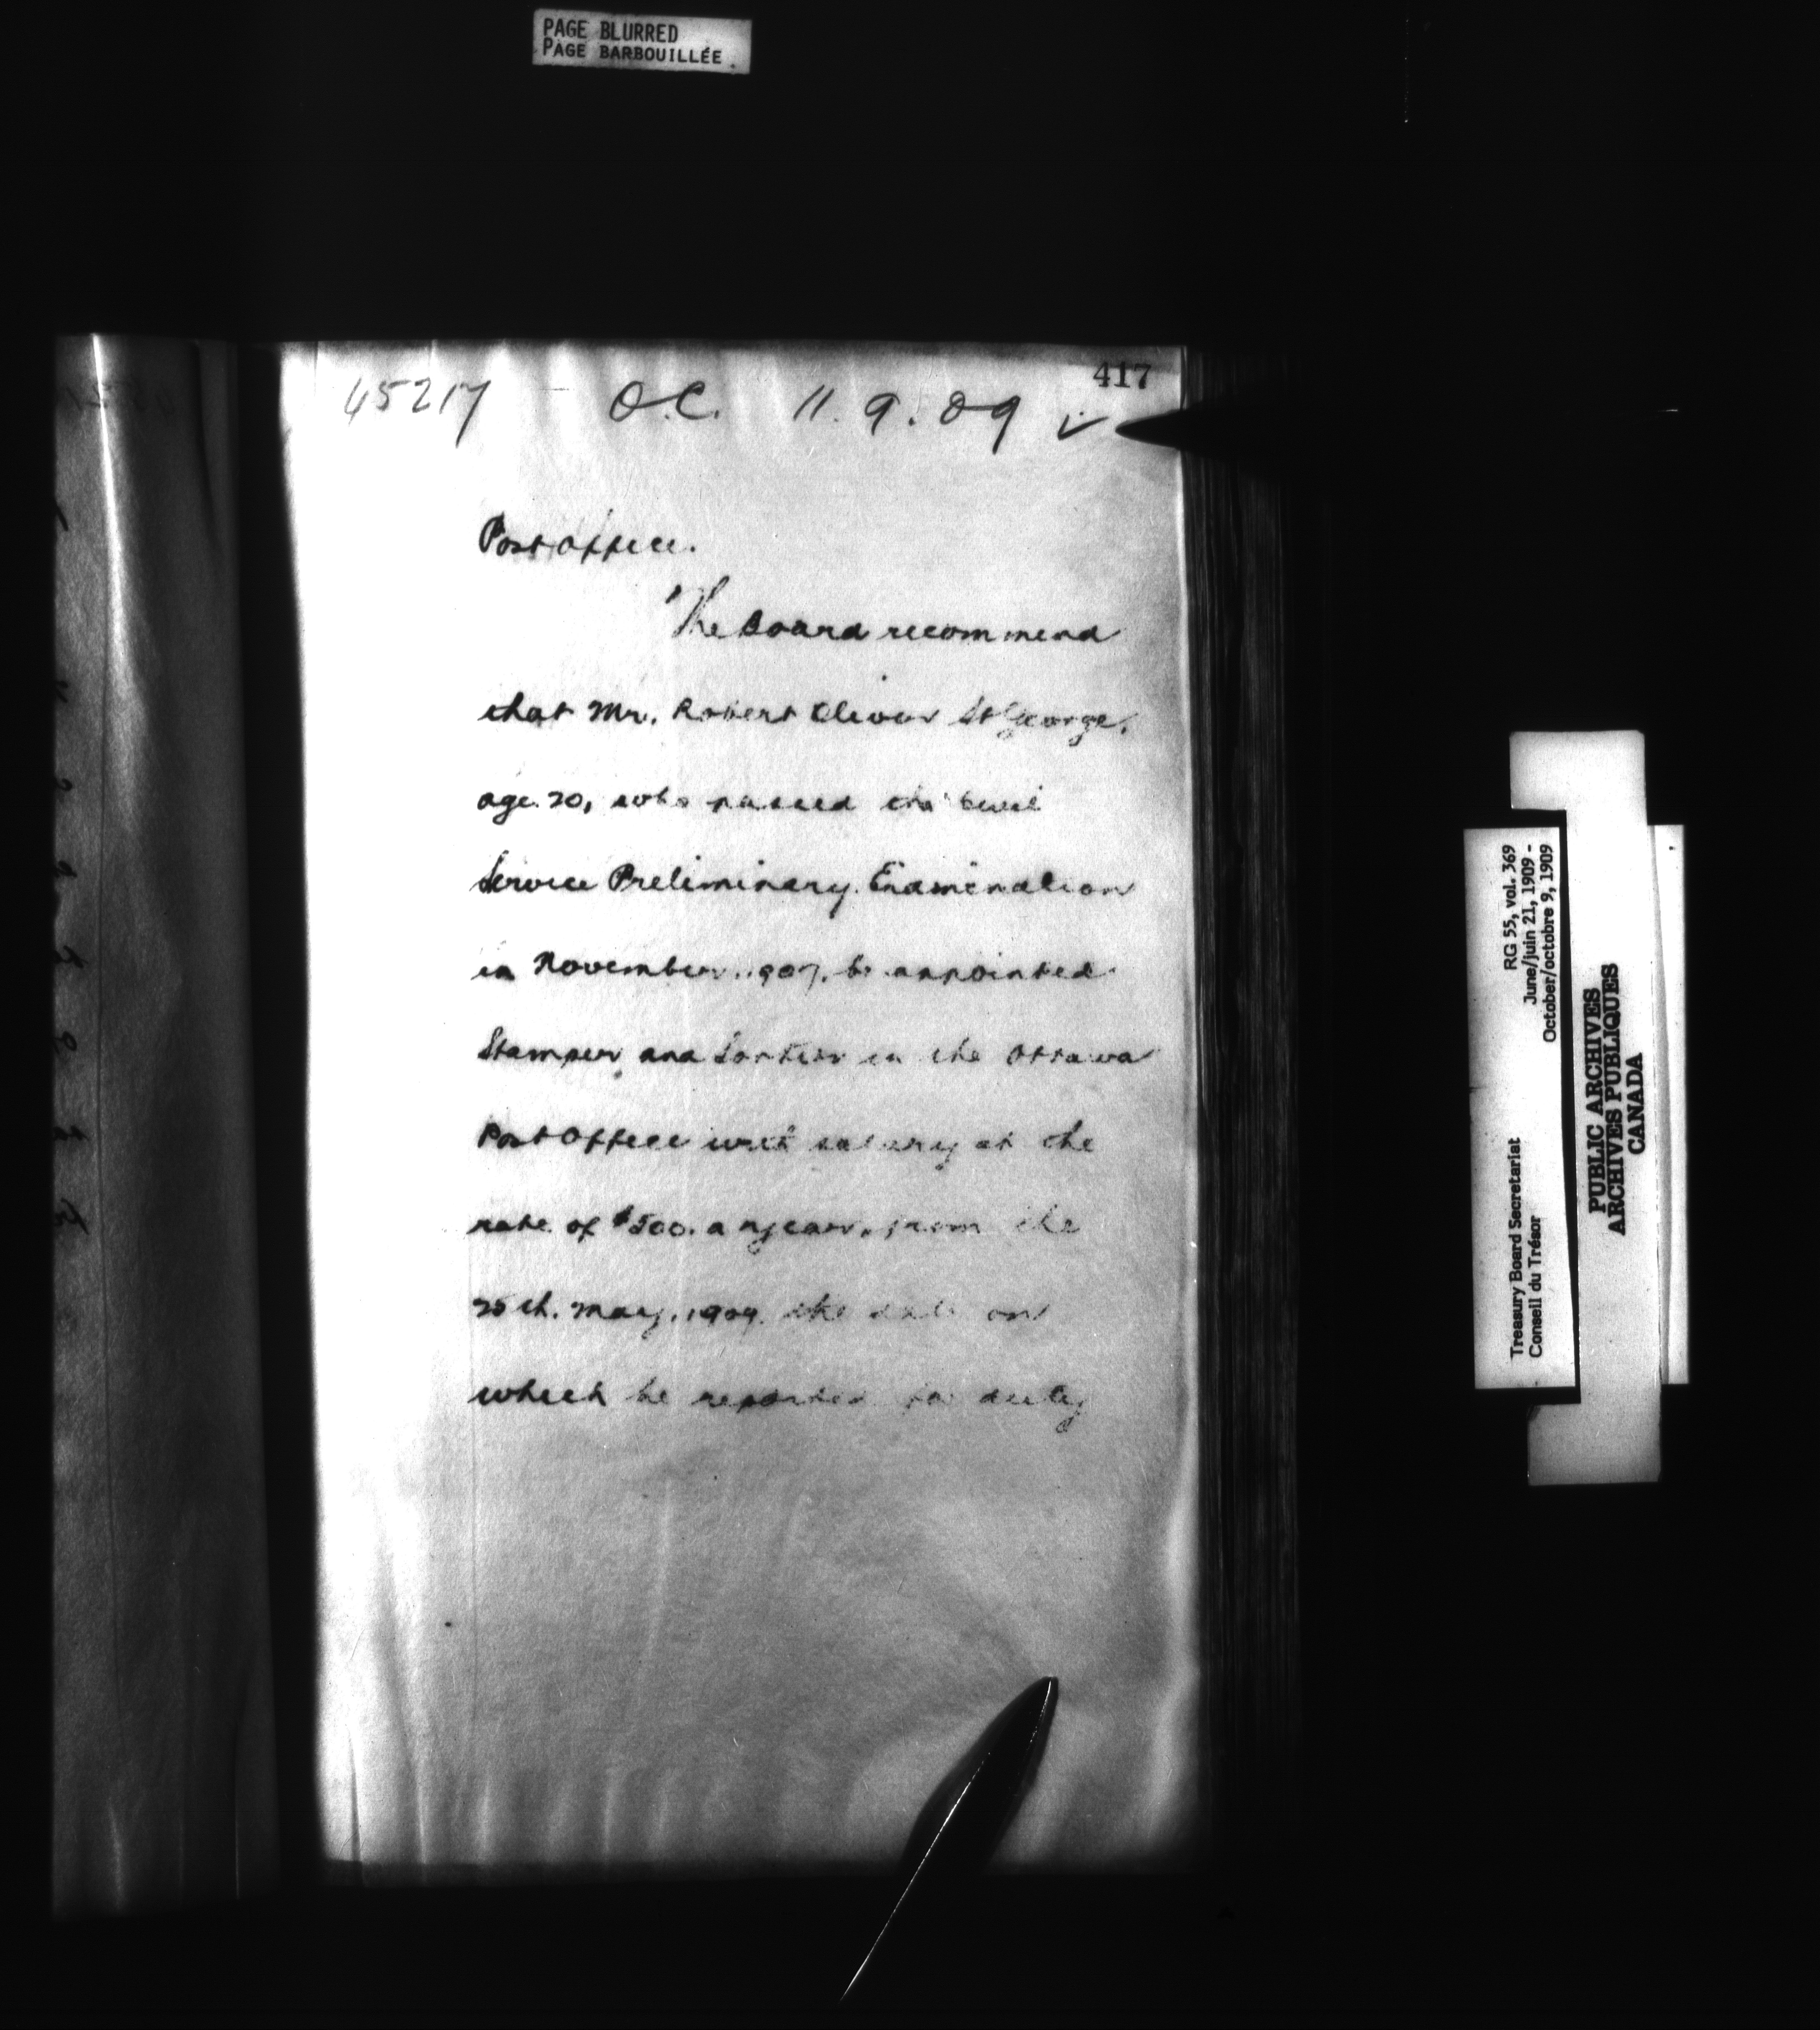 PAGE BLURRED
PAGE BARBOUILLÉE
417
45217 - O.C. 11.9.09 ✓
Post Office.
The Board recommend
that Mr. Robert Oliver St George,
age 20, who passed the Civil
Service Preliminary Examination
in November, 1907, be appointed
Stamper and Sorter in the Ottawa
Post Office with salary at the
rate of $500. a year, from the
25th. May, 1909, the date on
which he reported for duty
Treasury Board Secretariat
Conseil du Trésor
RG 55, vol. 369
June/juin 21, 1909 -
October/octobre 9, 1909
PUBLIC ARCHIVES
ARCHIVES PUBLIQUES
CANADA